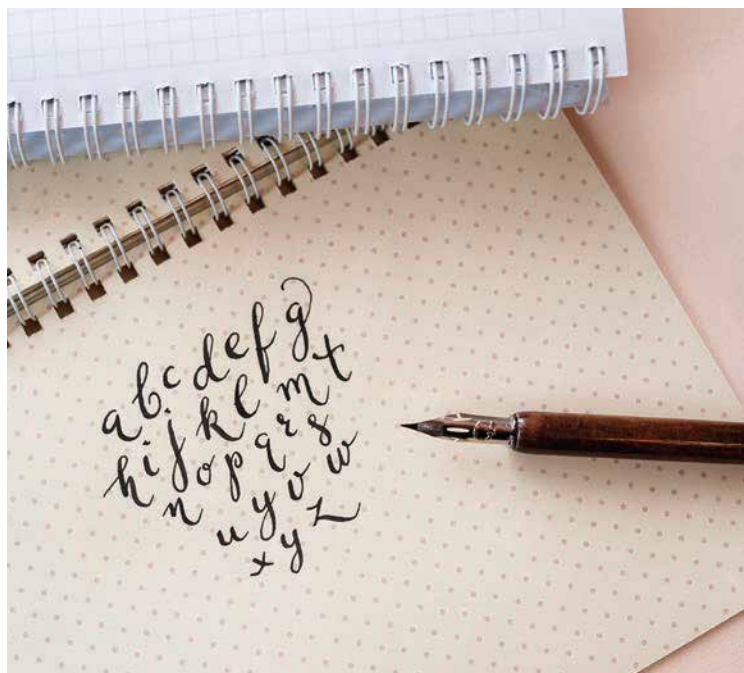 a b c d e f g
h i j k l m t
n o p q r s
u y v w
x y z